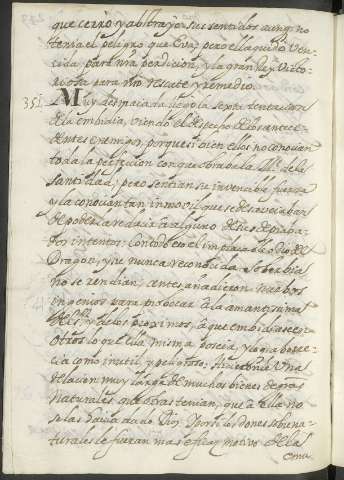 que cerró y abstrajo sus sentidos aunq. no
tenia el peligro que Eva; pero ella quedó Ven-
cida, para nra perdicion, y la gran Reyna Victo-
riosa para nro rescate y remedio.
351 Muy desmaiada llegó la septa tentadora
de la embidia, viendo el despecho de los antece-
dentes enemigos, porque si bien ellos no conocian
toda la perfeccion con que obraba la Me. de la
santidad; pero sentian su invencible fuerza
y la conocian tan inmobil, que se desauciaban
de poderla reducir á alguno de sus depraba-
dos intentos: Con todo eso el implacable odio del
Dragon, y su nunca reconocida soberbia
no se rendian: antes añadieron nuebos
ingenios para probocar á la amantisima
del Sr. y de los proximos, á que embidiase en
otros lo que ella misma poseia, y lo q. aborre-
cia como inutil y peligroso: Hicieronle Una
relacion muy larga de muchos bienes de gras
naturales que otras tenian, que á ella no
se los havia dado Dios. Y por si los dones sobrena-
turales le fueran mas eficaz motivo de la
emu.